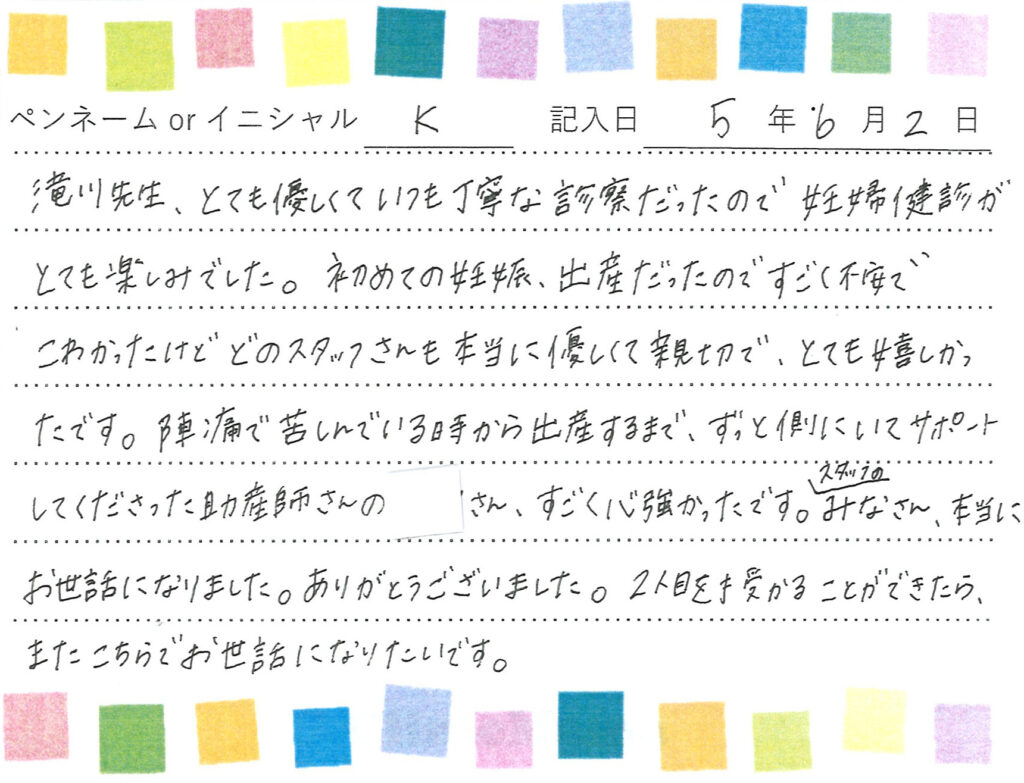 ペンネーム or イニシャル K 記入日 5 年 6 月 2 日
滝川先生、とても優しくていつも丁寧な診察だったので妊婦健診が
とても楽しみでした。初めての妊娠、出産だったのですごく不安で
こわかったけどどのスタッフさんも本当に優しくて親切で、とても嬉しかっ
たです。陣痛で苦しんでいる時から出産するまで、ずっと側にいてサポート
スタッフの
してくださった助産師さんの さん、すごく心強かったです。みなさん、本当に
お世話になりました。ありがとうございました。2人目を授かることができたら、
またこちらでお世話になりたいです。